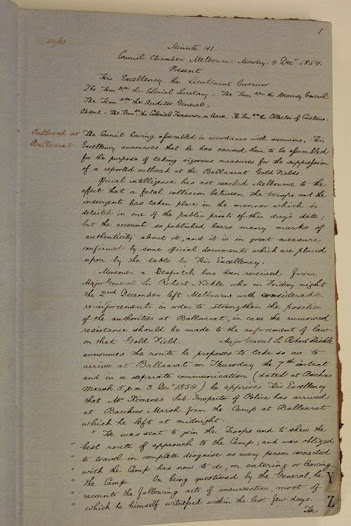 1
Minute 41.
Council Chamber Melbourne Monday, 4 Decr. 1854.
Present
His Excellency the Lieutenant Governor
The Honble the Colonial Secretary. The Honble the Attorney General
The Honble the Auditor General.
Absent. The Honble the Colonial Treasurer on leave. The Honble the Collector of Customs.
Outbreak at
Ballaarat
The Council having assembled in accordance with summons, His
Excellency announces that he has caused them to be assembled
for the purpose of taking vigorous measures for the suppression
of a reported outbreak at the Ballaarat Gold Fields
Official intelligence has not reached Melbourne to the
effect that a fatal collision between the troops and the
insurgents has taken place in the manner which is
detailed in one of the public prints of this day's date;
but the account so published bears many marks of
authenticity about it, and it is in great measure
confirmed by some official documents which are placed
upon the table by His Excellency.
Moreover a Despatch has been received from
Major General Sir Robert Nickle who on Friday night
the 2nd December left Melbourne with considerable
reinforcements in order to strengthen the position
of the authorities at Ballaarat, in case the rumoured
resistance should be made to the enforcement of law
on that Gold Field. Major General Sir Robert Nickle
announces the route he proposes to take so as to
arrive at Ballaarat on Thursday the 7th instant
and in a separate communication (dated at Bacchus
Marsh 5 p.m. 3 Decr 1854) he apprises His Excellency
that Mr Sub Inspector of Police has arrived
at Bacchus Marsh from the Camp at Ballaarat
which he left at midnight
" He was sent to join the Troops and to shew the
" best route of approach to the Camp, and was obliged
" to travel in complete disguise as every person connected
" with the Camp has now to do, on entering or leaving
" the Camp. On being questioned by the General, he
" recounts the following acts of insurrection most of
" which he himself witnessed within the last few days.
The
Y
Z